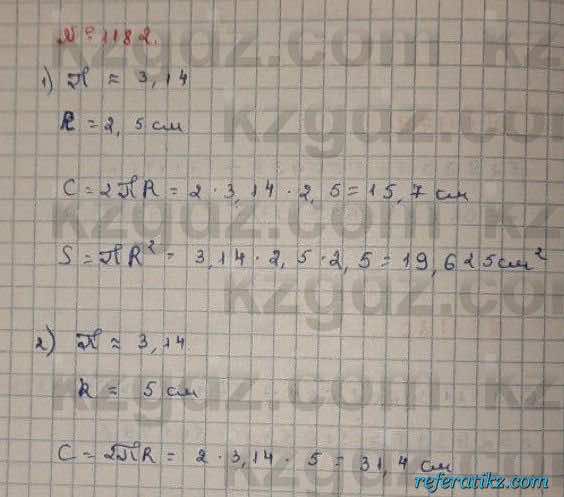 № 1182.
1) π ≈ 3,14
R = 2,5 см
C = 2πR = 2 · 3,14 · 2,5 = 15,7 см
S = πR² = 3,14 · 2,5 · 2,5 = 19,625 см²
2) π ≈ 3,14
R = 5 см
C = 2πR = 2 · 3,14 · 5 = 31,4 см
kzgdz.com
kzgdz.com
kzgdz.com
kzgdz.com
kzgdz.com
kzgdz.com
referatikz.com